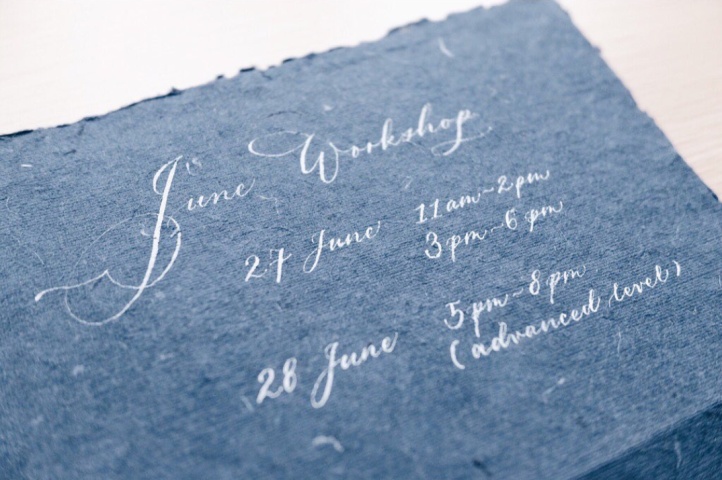 June Workshop
27 June 11am~2pm
3pm~6pm
28 June 5pm~8pm
(advanced level)